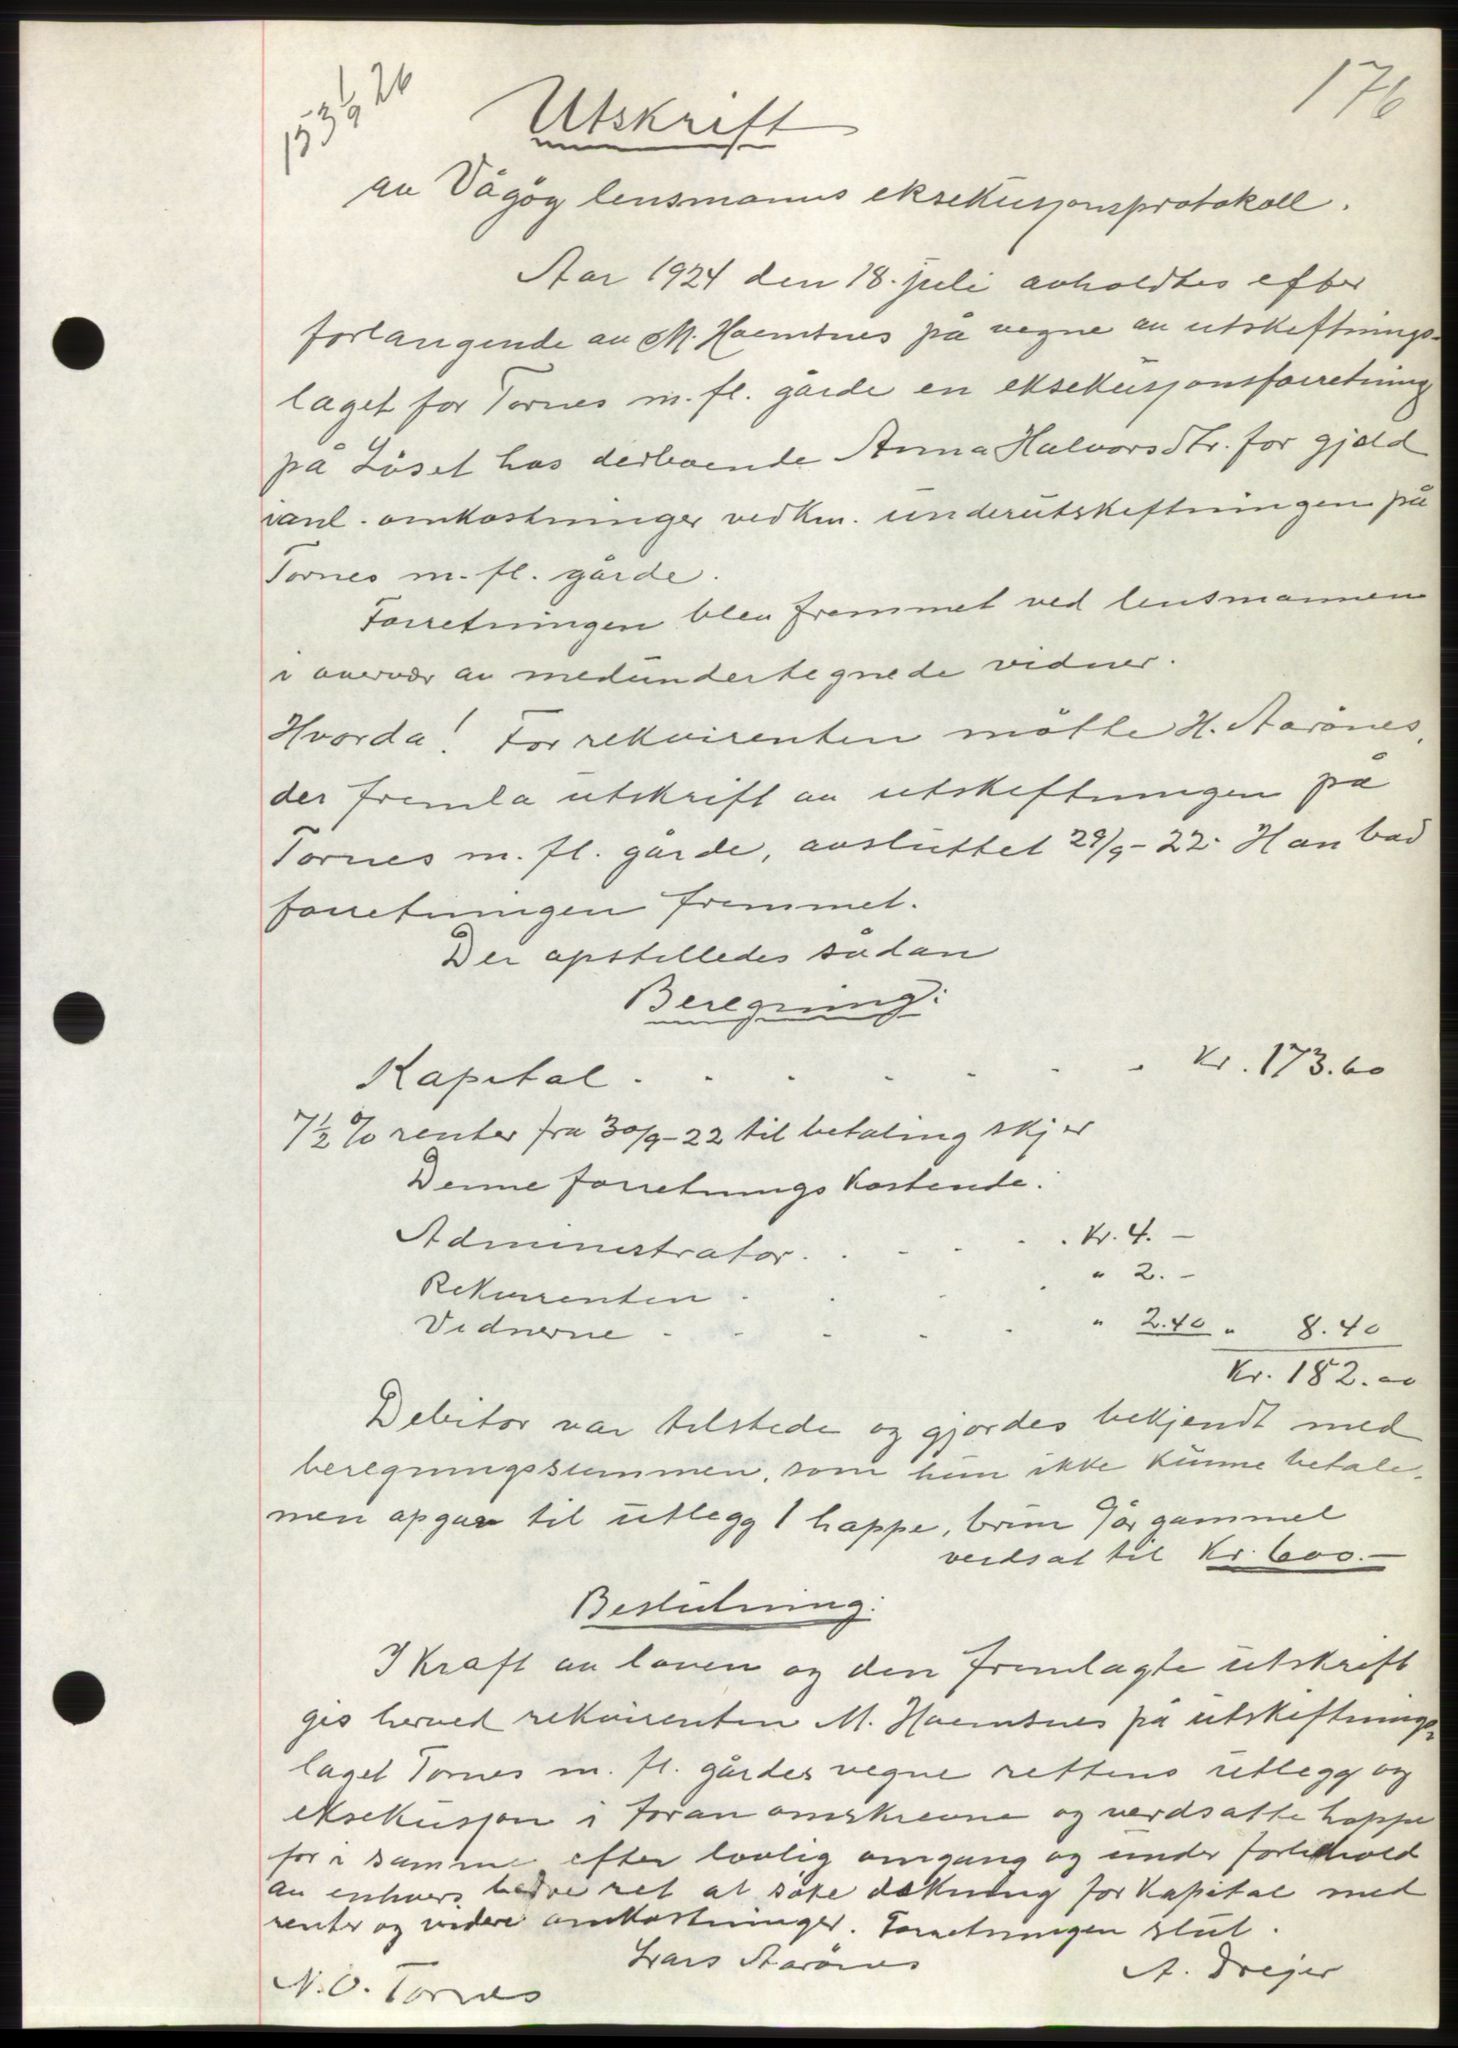 153 1/9 26
176
Utskrift
av Vågöy lensmanns eksekusjonsprotokoll.
Aar 1924 den 18. juli avholdtes efter
forlangende av M. Havnsnes på vegne av utskiftnings-
laget for Tornes m. fl. gårde en eksekusjonsforretning
på Löset hos derboende Anna Halvorsdtr. for gjeld
ianl. omkostninger vedkm. underutskiftningen på
Tornes m. fl. gårde.
Forretningen blev fremmet ved lensmannen
i overvær av medundertegnede vidner.
Hvorda! For rekvirenten mötte H. Aarönes,
der fremla utskrift av utskiftningen på
Tornes m. fl. gårde, avsluttet 29/9-22. Han bad
forretningen fremmet.
Der opstilledes sådan
Beregning:
Kapital . . . . . . . Kr. 173.60
7½ % renter fra 30/9-22 til betaling skjer
Denne forretnings kostende:
Administrator . . . . . . Kr. 4. –
Rekvirenten . . . . " 2. –
Vidnerne . . . . . " 2.40 " 8.40
Kr. 182.00
Debitor var tilstede og gjordes bekjendt med
beregningssummen, som hun ikke kunne betale,
men opgav til utlegg 1 hoppe, brun 9 år gammel
verdsat til Kr. 600.–
Beslutning:
I kraft av loven og den fremlagte utskrift
gis herved rekvirenten M. Havnsnes på utskiftnings-
laget Tornes m. fl. gårdes vegne rettens utlegg og
eksekusjon i foran omskrevne og verdsatte hoppe
for i samme efter lovlig omgang og under forbehold
av enhvers bedre ret at söke dekning for kapital med
renter og videre omkostninger. Forretningen slut.
Lars Aarönes
A. Drejer
N. O. Tornes